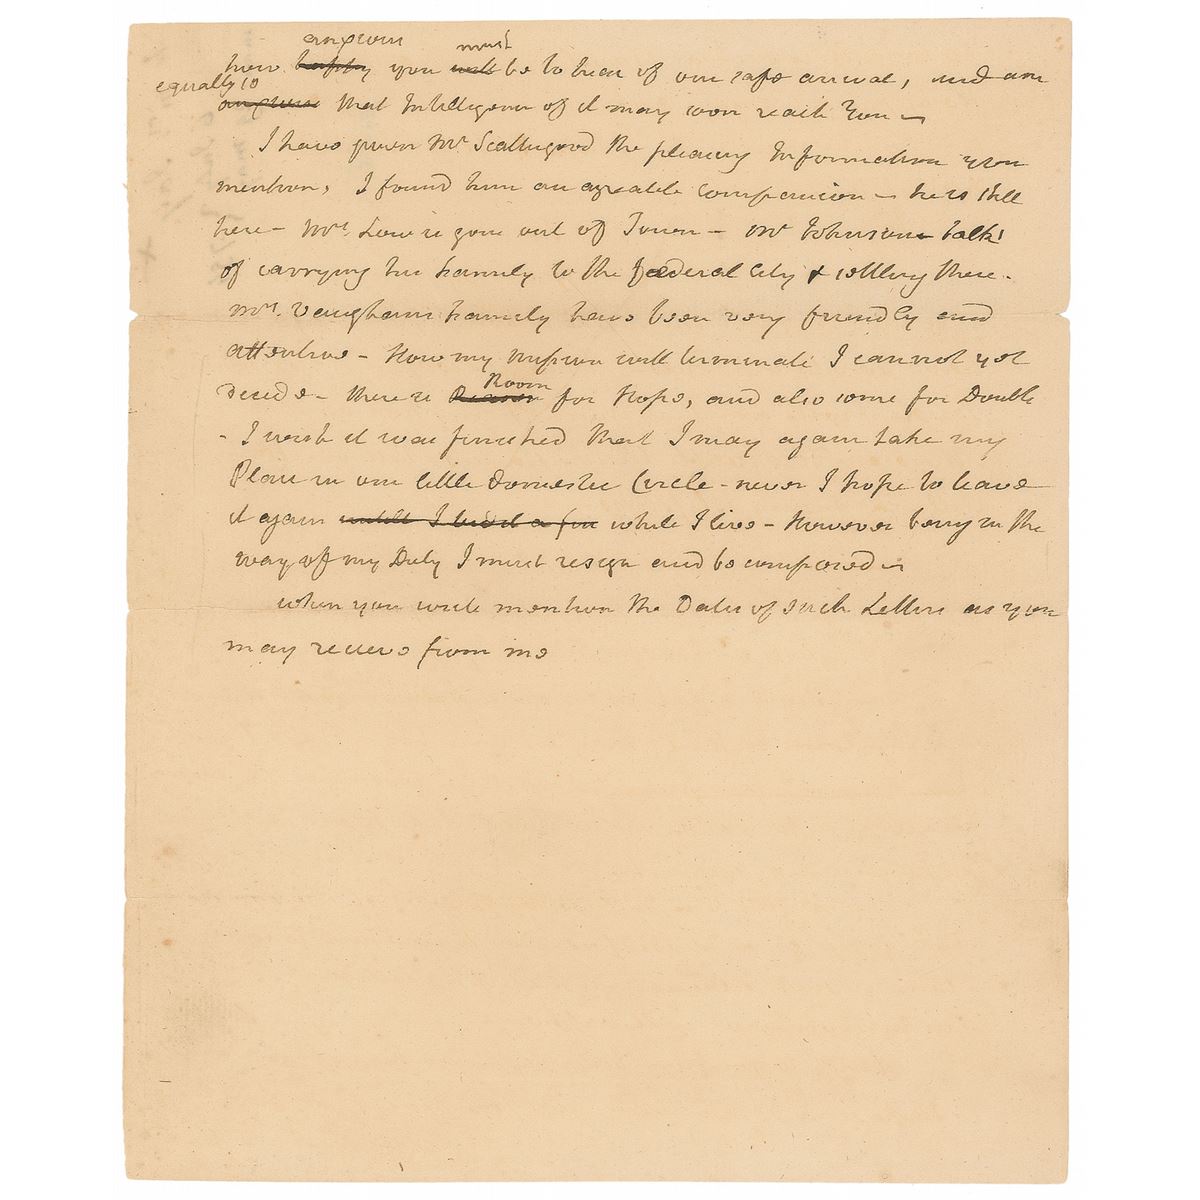 anxious must
how happy you will be to hear of our safe arrival, and am
equally so
anxious that Intelligence of it may soon reach You—
I have given Mr. Scallugood the pleasing Information you
mention, I found him an agreable companion — he is still
here — Mrs. Low is gone out of Town — Mr Johnson talks
of carrying his Family to the fœderal City & settling there.
Mrs. Vaughans Family have been very friendly and
attentive — How my mission will terminate I cannot yet
Room
decide — there is Reason for Hope, and also some for Doubt
- I wish it was finished that I may again take my
Place in our little Domestic Circle — never I hope to leave
it again untill I bid it a fin while I live — However being in the
way of my Duty I must resign and be composed —
when you write mention the Dates of such Letters as you
may recieve from me